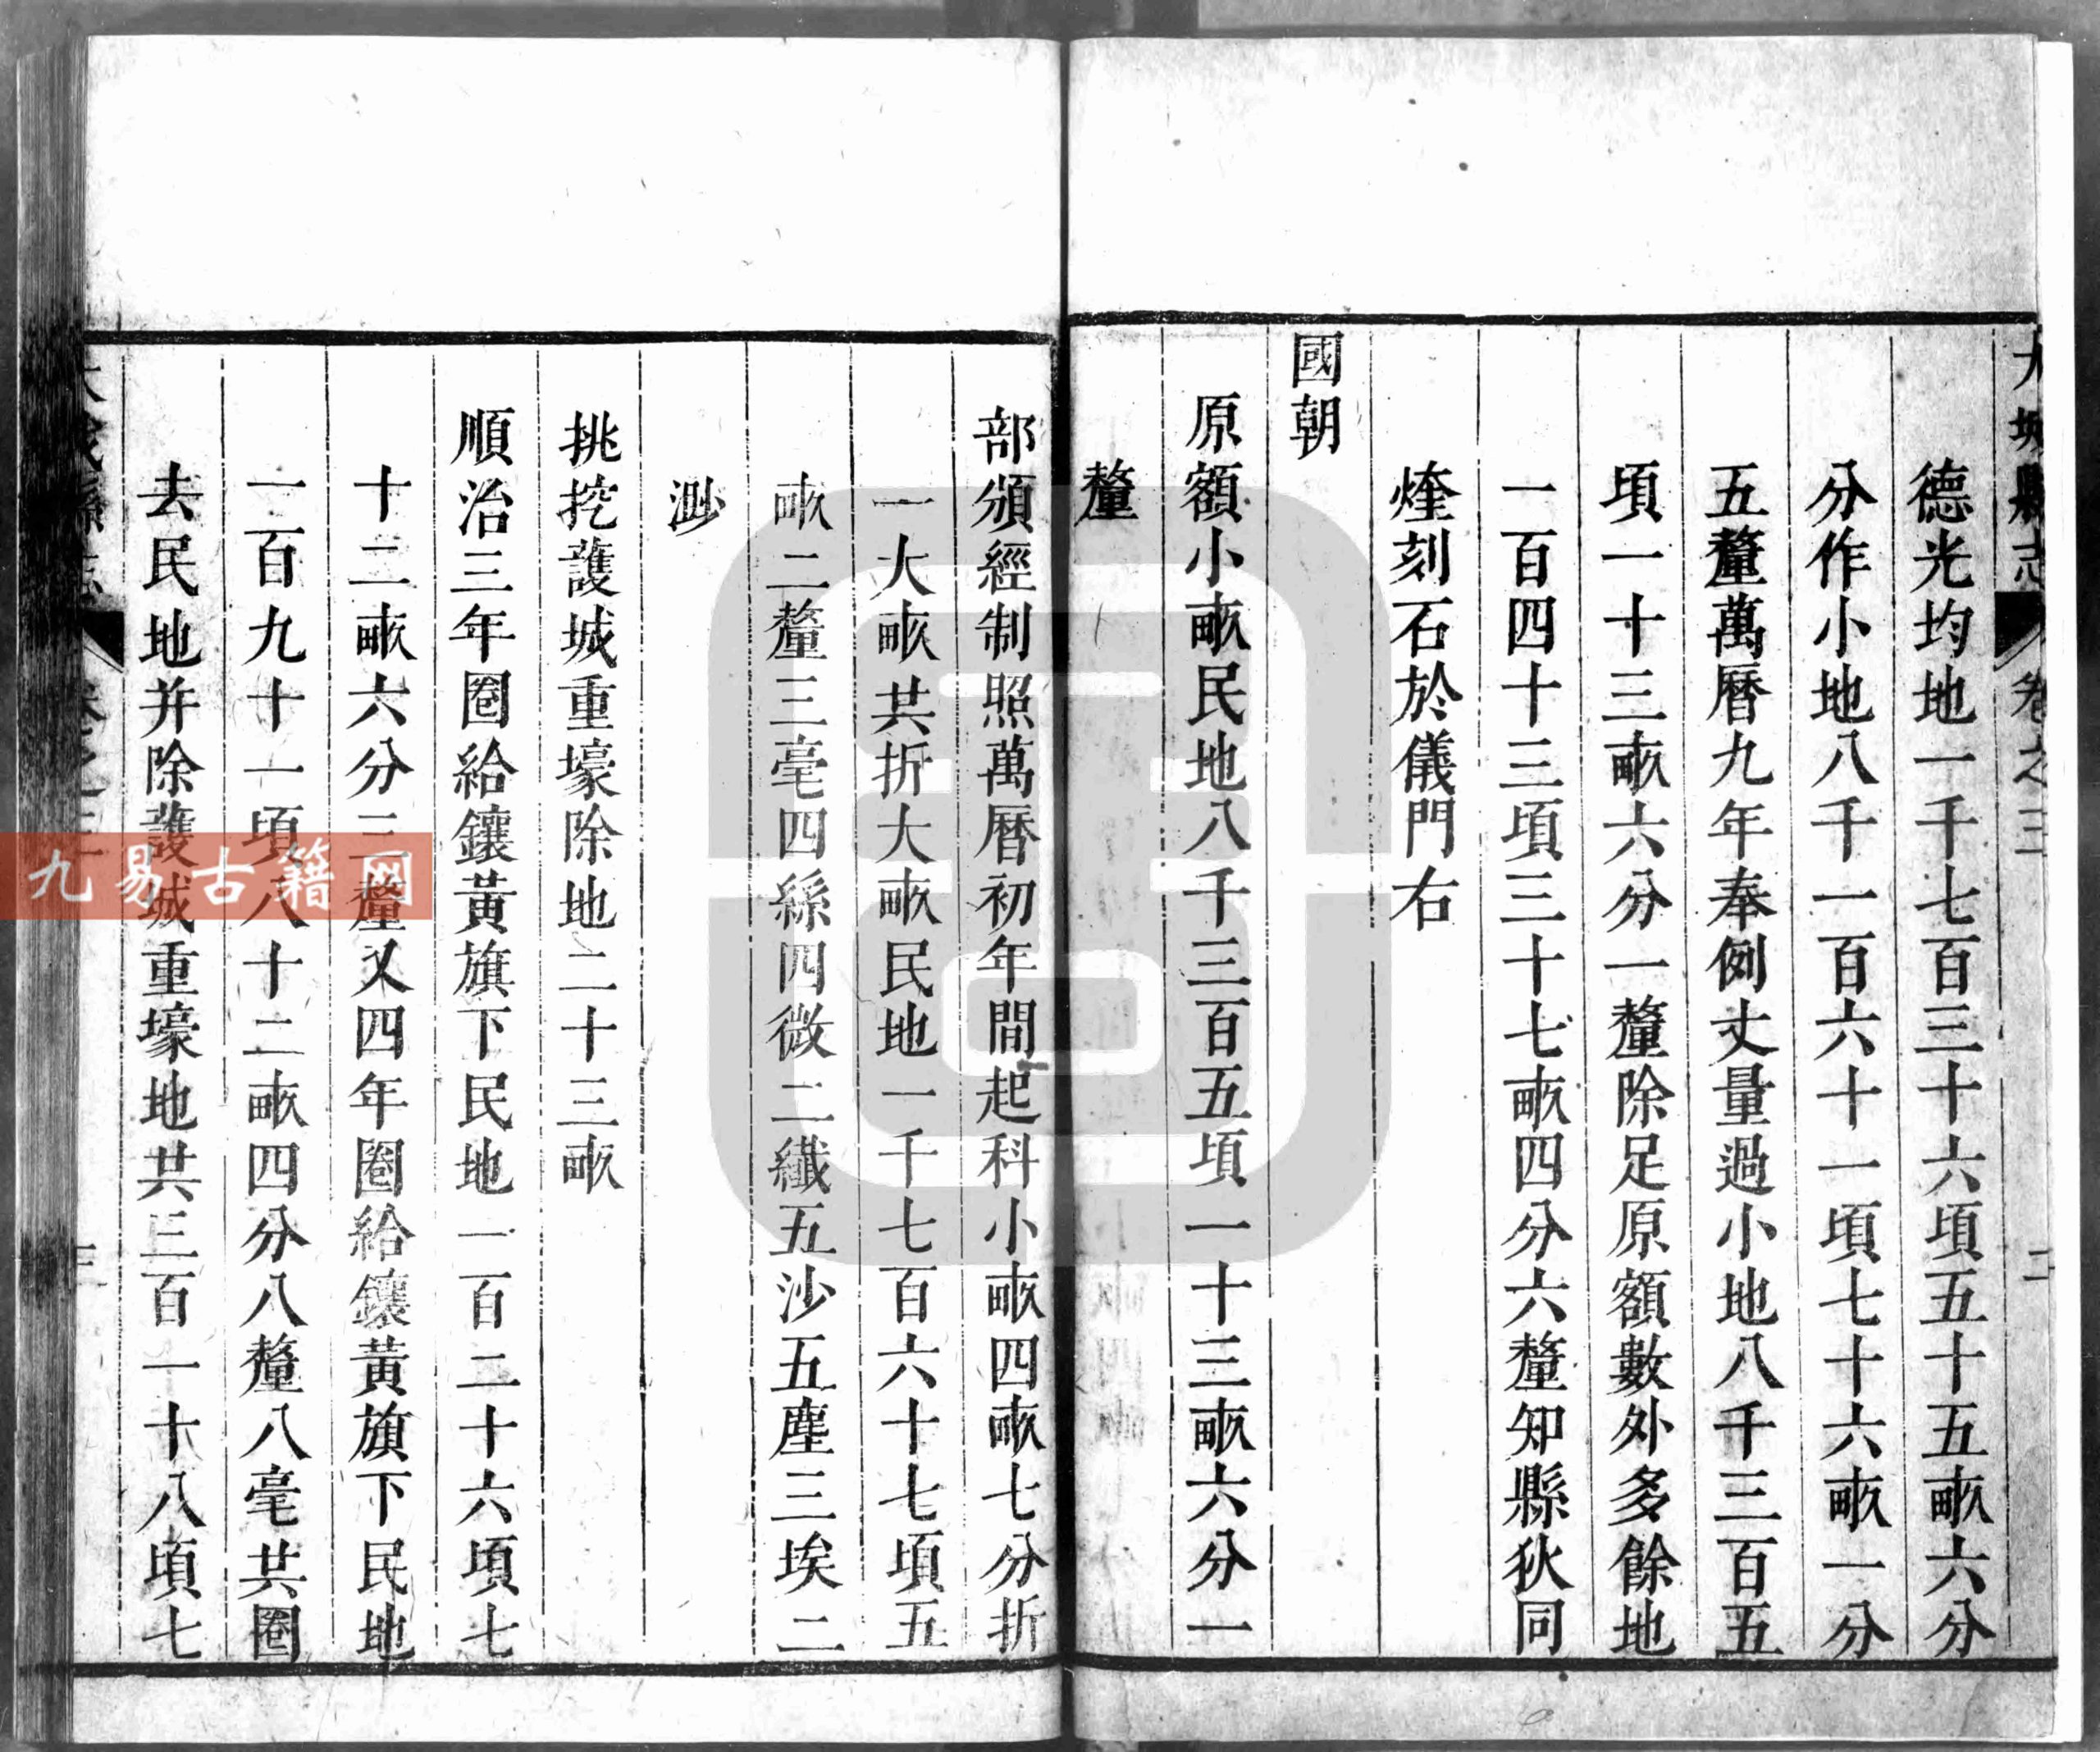 大城縣志 卷之三 二
德光均地一千七百三十六項五十五畝六分
分作小地八千一百六十一項七十六畝一分
五釐萬曆九年奉例丈量過小地八千三百五
項一十三畝六分一釐除足原額數外多餘地
一百四十三項三十七畝四分六釐知縣狄同
煃刻石於儀門右
國朝
原額小畝民地八千三百五項一十三畝六分一
釐
部頒經制照萬曆初年間起科小畝四畝七分折
一大畝共折大畝民地一千七百六十七項五
畝二釐三毫四絲四微二纖五沙五塵三埃二
渺
挑挖護城重壕除地二十三畝
順治三年圈給鑲黃旗下民地一百二十六項七
十二畝六分三釐又四年圈給鑲黃旗下民地
一百九十一項八十二畝四分八釐八毫共圈
去民地并除護城重壕地共三百一十八項七
大城縣志 卷之三 三
九易古籍网